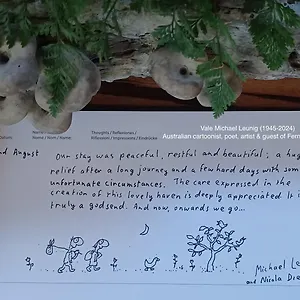 Vale Michael Leunig (1945-2024)
Australian cartoonist, poet, artist & guest of Fern
Name / Nom / Nome:
Thoughts / Reflexions /
nd August
Our stay was peaceful, restful and beautiful; a hug
relief after a long journey and a few hard days with som
unfortunate circumstances. The care expressed in the
creation of this lovely haven is deeply appreciated. It i
truly a godsend. And now, onwards we go...
Michael Le
and Nicola